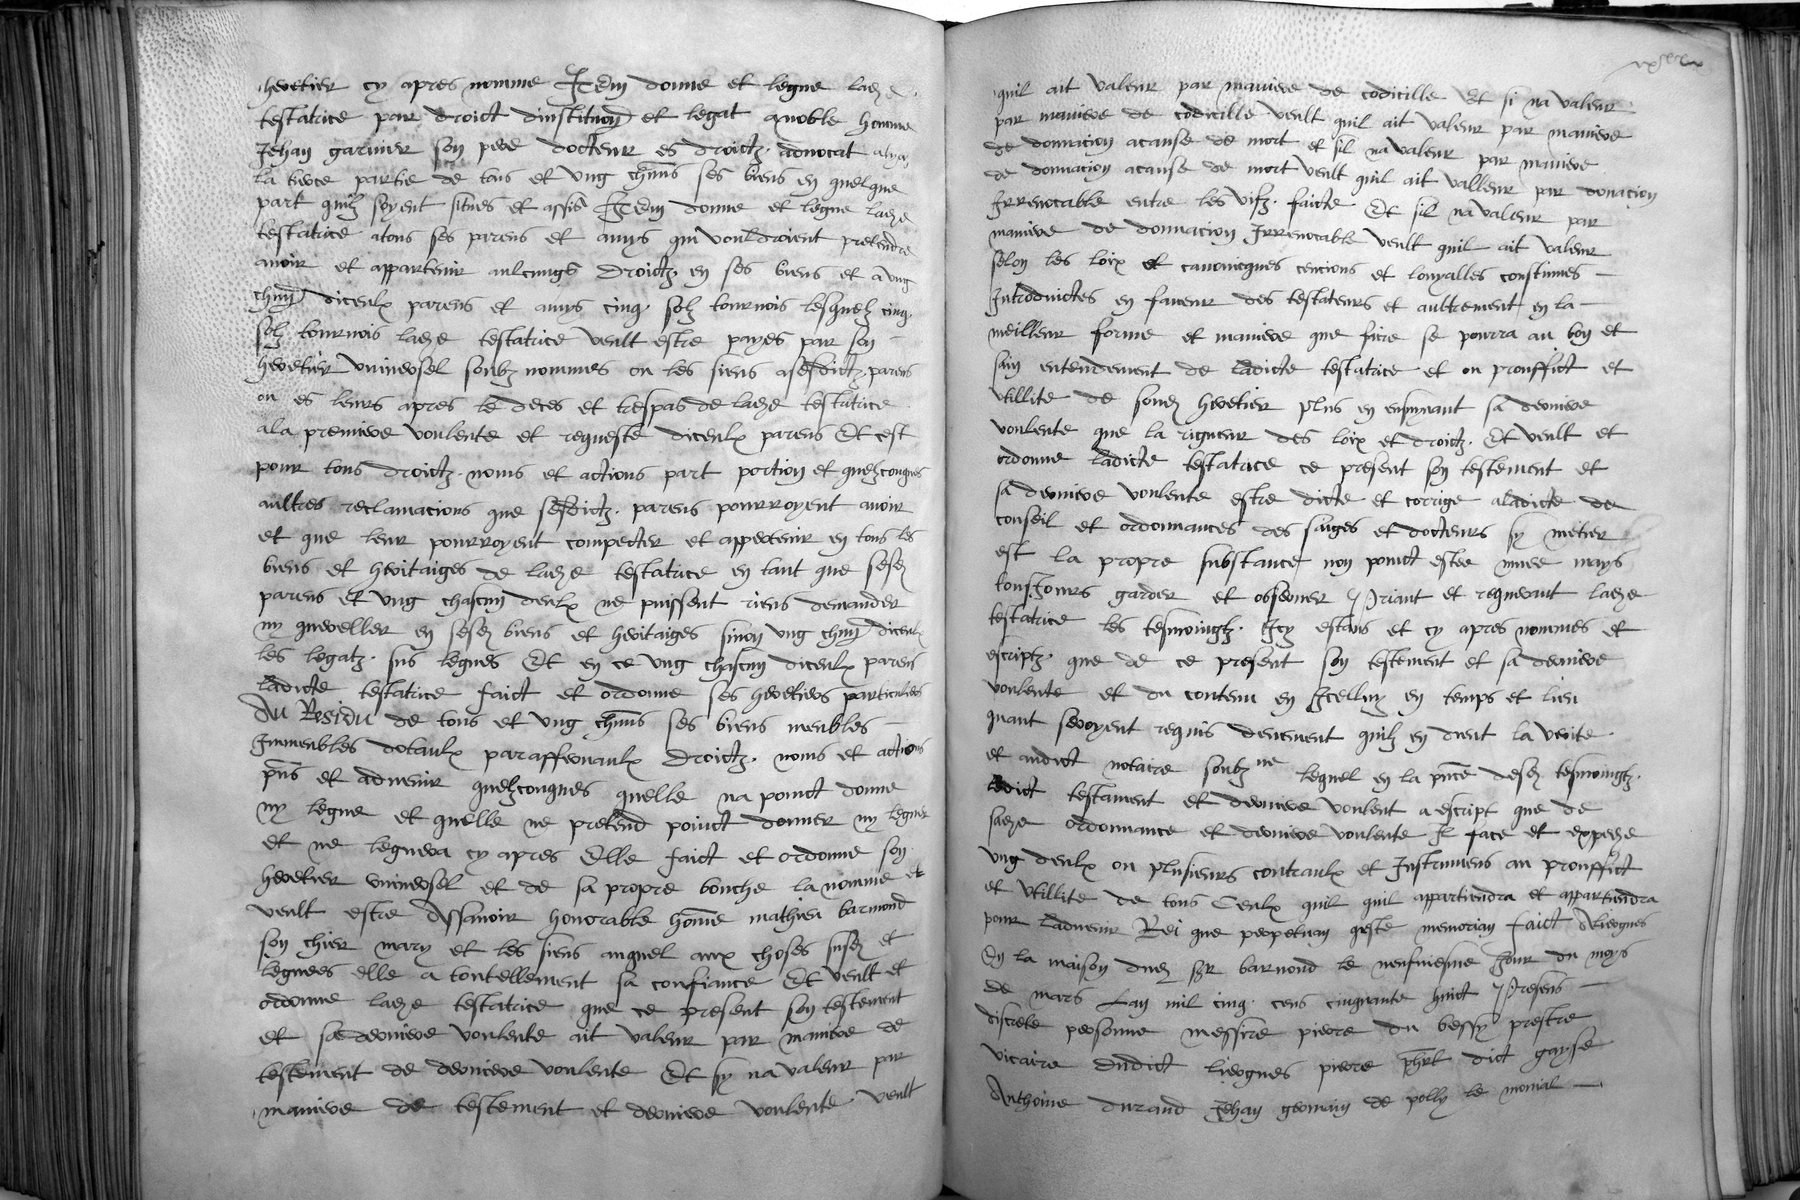 heretier cy apres nomme Item donne et legue ladze
testatrice par droict dinstitucion et legat a noble homme
Jehan garnier son pere docteur es droictz advocat
la tierce partie de tous et ung chnus ses biens en quelque
part quilz soyent situes et assis Item donne et legue ladze
testatrice atous ses parens et amys qui vouldroient pretendre
avoir et appartenir aulcungs droictz en ses biens et a ung
chnun diceulx parens et amys cinq solz tournois lesquelz cinq
solz tournois ladze testatrice veult estre payes par son
heretier universel soubz nommes ou les siens asesdictz parens
ou es leurs apres le deces et trespas de ladze testatrice
ala premiere voulente et requeste diceulx parens Et cest
pour tous droictz noms et actions part portion et quelzconques
aultres reclamacions que sesdictz parens pourroyent avoir
et que leur pourroyent compecter et appertenir en tous les
biens et heritaiges de ladze testatrice en tant que sesdz
parens et ung chascun deulx ne puissent riens demander
ny quereller en sesdz biens et heritaiges sinon ung chnun diceulx
les legatz sus legues Et en ce ung chascun diceulx parens
ladicte testatrice faict et ordonne ses heretiers particuliers
Au Residu de tous et ung chnus ses biens meubles
Immeubles dotaulx paraffernaulx droictz noms et actions
pns et advenir quelzconques quelle na poinct donne
ny legue et quelle ne pretend poinct donner ny leguer
et ne leguera cy apres Elle faict et ordonne son
heretier universel et de sa propre bouche la nomme et
veult estre Assavoir honorable home mathieu barnond
son chier mary et les siens auquel aux choses susdz et
leguees elle a toutellement sa confiance Et veult et
ordonne ladze testatrice que ce present son testement
et sa derniere voulente ait valeur par maniere de
testement de derniere voulente Et sy na valeur par
maniere de testement et derniere voulente veult
quil ait valeur par maniere de codicille Et si na valeur
par maniere de codicille veult quil ait valeur par maniere
de donnacion acause de mort et sil na valeur par maniere
de donnacion acause de mort veult quil ait valleur par donacion
Irrevocable entre les vifz faicte Et sil na valeur par
maniere de donnacion Irrevocable veult quil ait valeur
selon les loix et canonicques cencions et louyalles constumes
Introduictes en faveur des testateurs et aultrement en la
meilleur forme et maniere que faire se pourra au bon et
sain entendement de ladicte testatrice et ou prouffict et
utillite de sondz heretier plus en ensuyvant sa derniere
voulente que la rigueur des loix et droictz Et veult et
ordonne ladicte testatrice ce present son testement et
sa derniere voulente estre dicte et corrige aladicte de
conseil et ordonnances des saiges et docteurs sy metier
est la propre substance non poinct estre muee mays
tousjours garder et observer Priant et requerant ladze
testatrice les tesmoingtz Icy estans et cy apres nommes et
escriptz que de ce present son testement et sa derniere
voulente et du contenu en Icelluy en temps et lieu
quant seroyent requis deuement quilz en dient la verite
et audict notaire soubz ne lequel en la pnce desdz tesmoingtz
ledict testament et derniere voulent a escript que de
sadze ordonnance et derniere voulente Il face et expedze
ung deulx ou plusieurs contraulx et Instrumens au prouffict
et utillite de tous Ceulx quil quil appartiendra et appartiendra
pour ladvenir Rei que perpetuam geste memoriam faict A lieognes
En la maison dudz sr barnond le neufviesme Jour du moys
de mars Lan mil cinq cens cinquante huict Presens
discrete personne messire pierre du bessy prestre
vicaire dudict lieognes pierre dict gayse
Anthoine durand Jehan germain de polly le monial